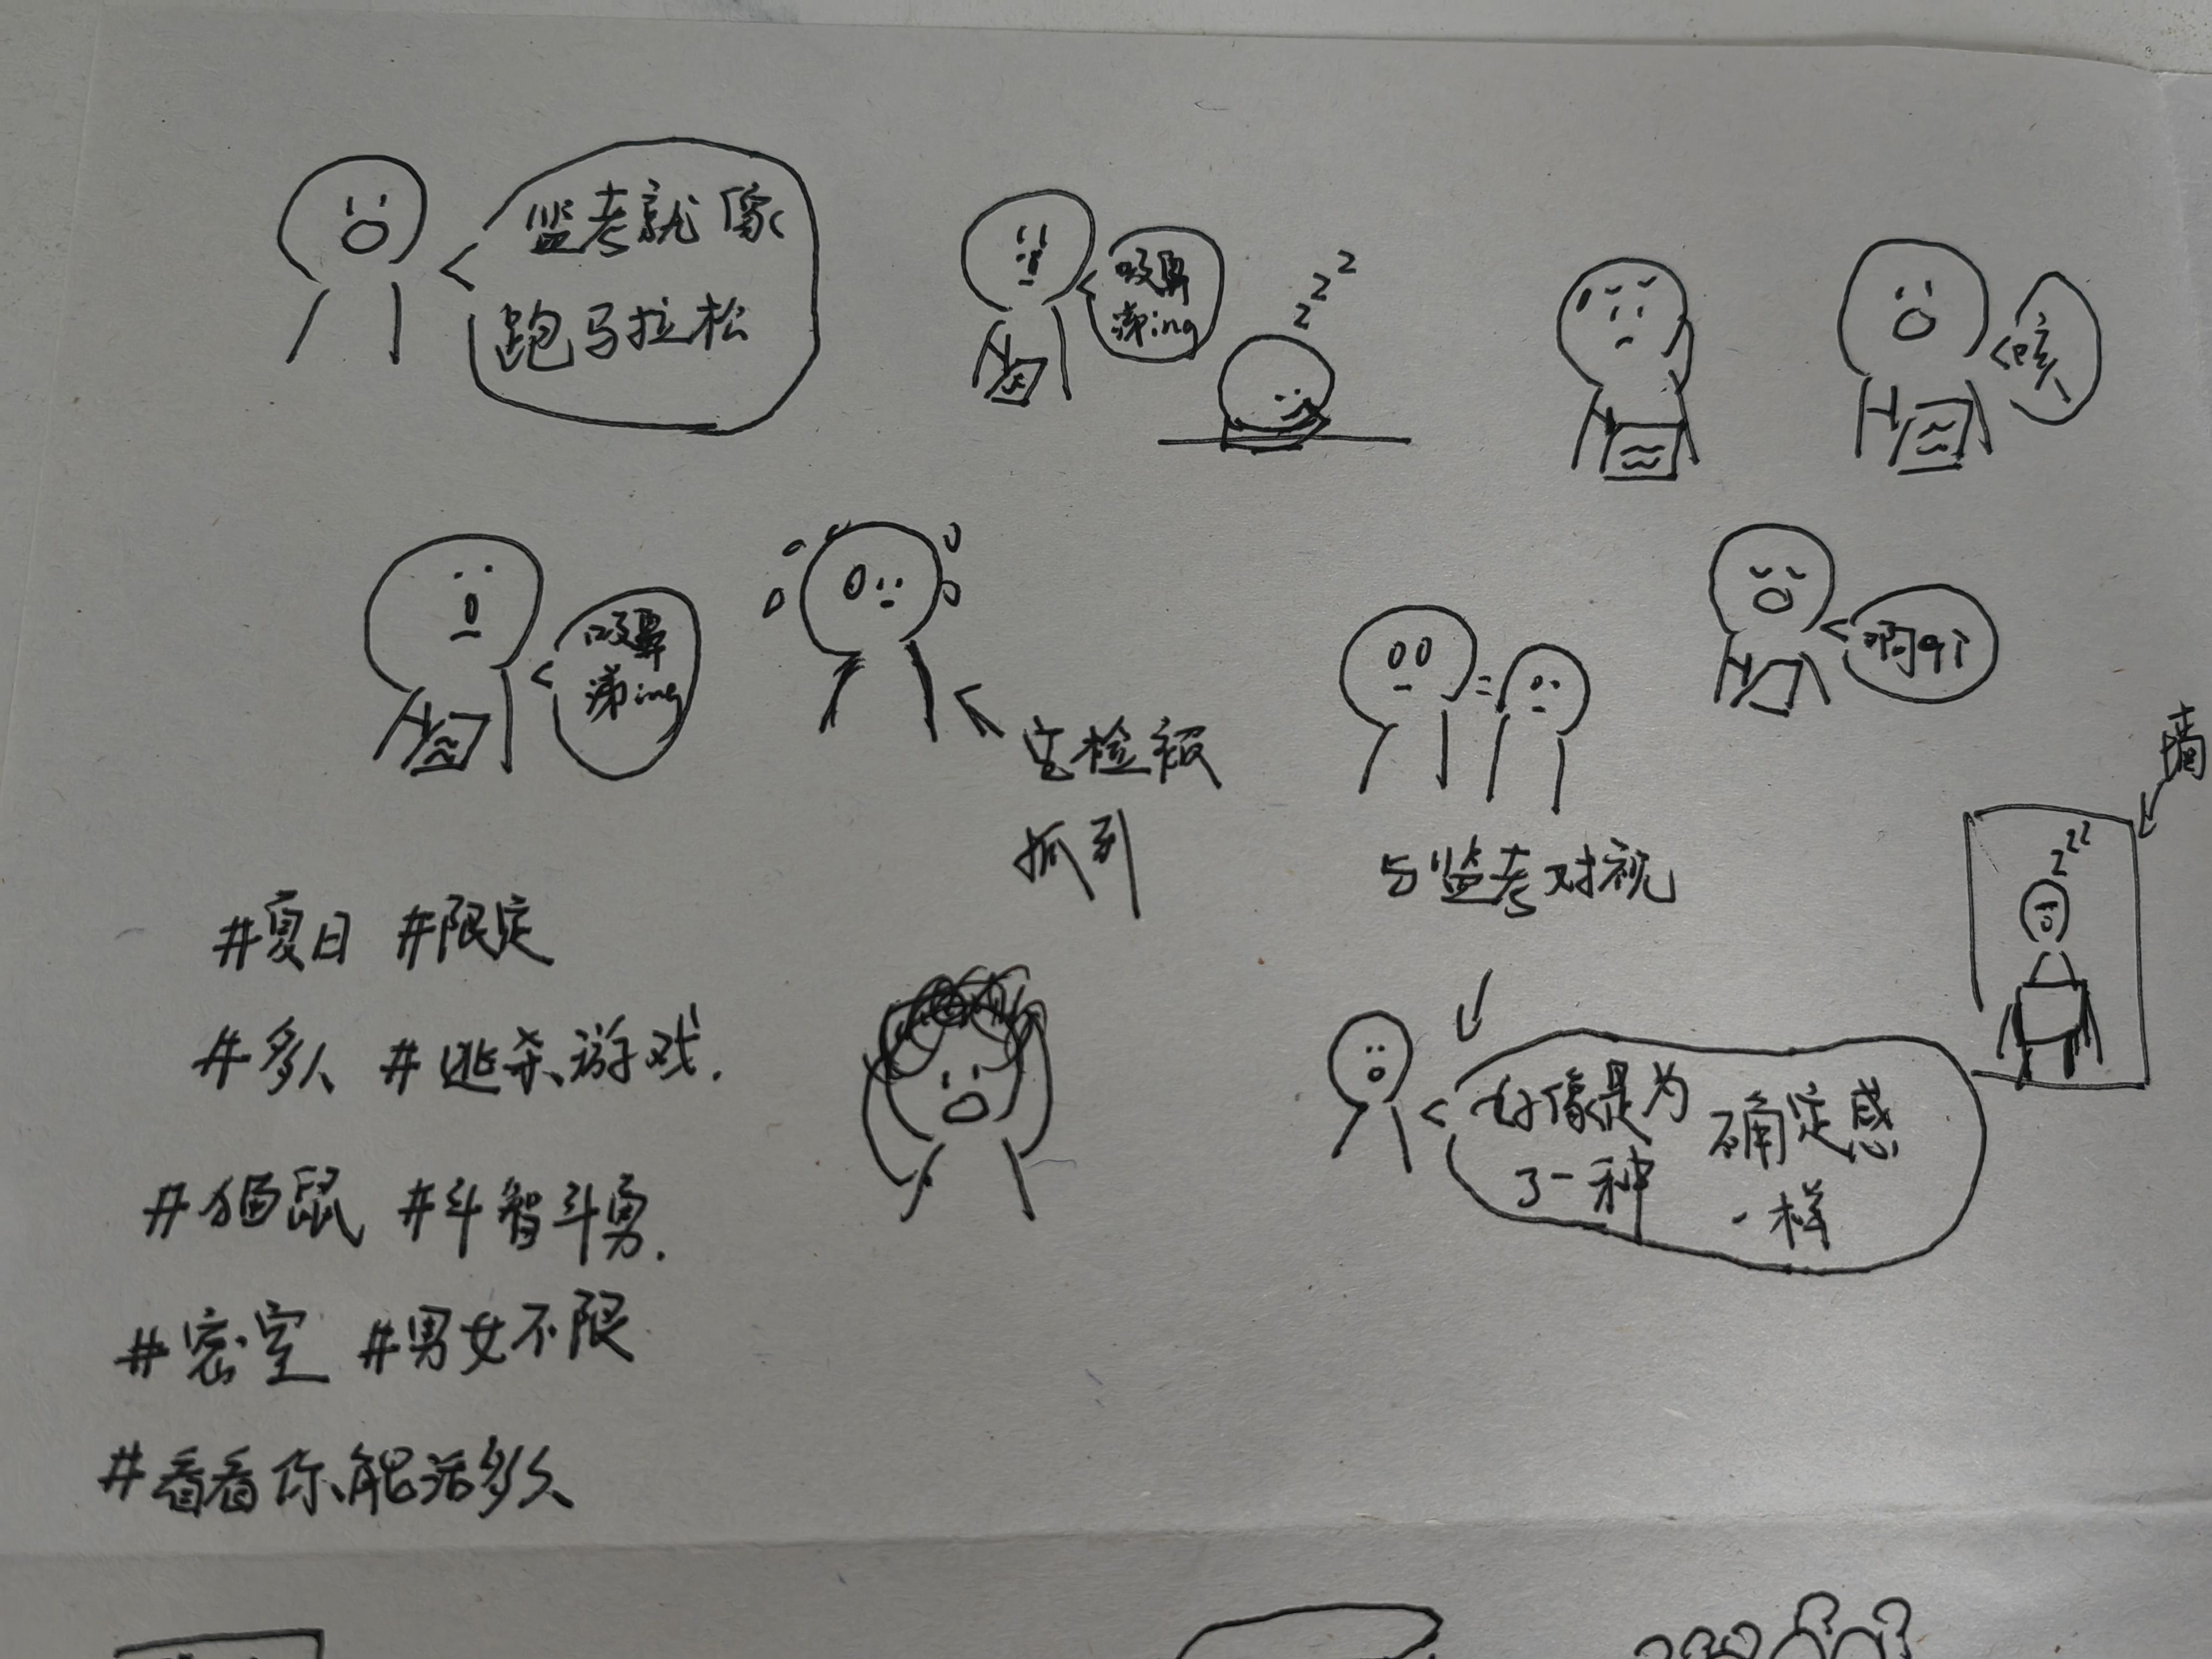 监考就像
跑马拉松
吸鼻
涕ing
zzz
咳
吸鼻
涕ing
安检被
抓到
与监考对视
啊
墙
zzz
好像是为
了一种
确定感
一样
#夏日 #限定
#多人 #逃杀游戏.
#猫鼠 #斗智斗勇.
#密室 #男女不限
#看看你能活多久